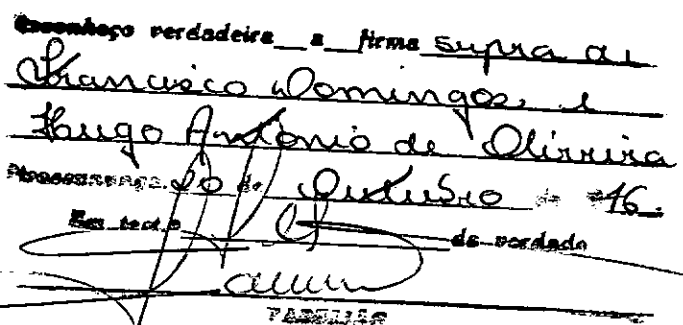 Reconheço verdadeira a firma supra de
Francisco Domingos e
Hugo Antonio de Oliveira
20 de Outubro de 1976.
Em test.o da verdade
TABELIÃO